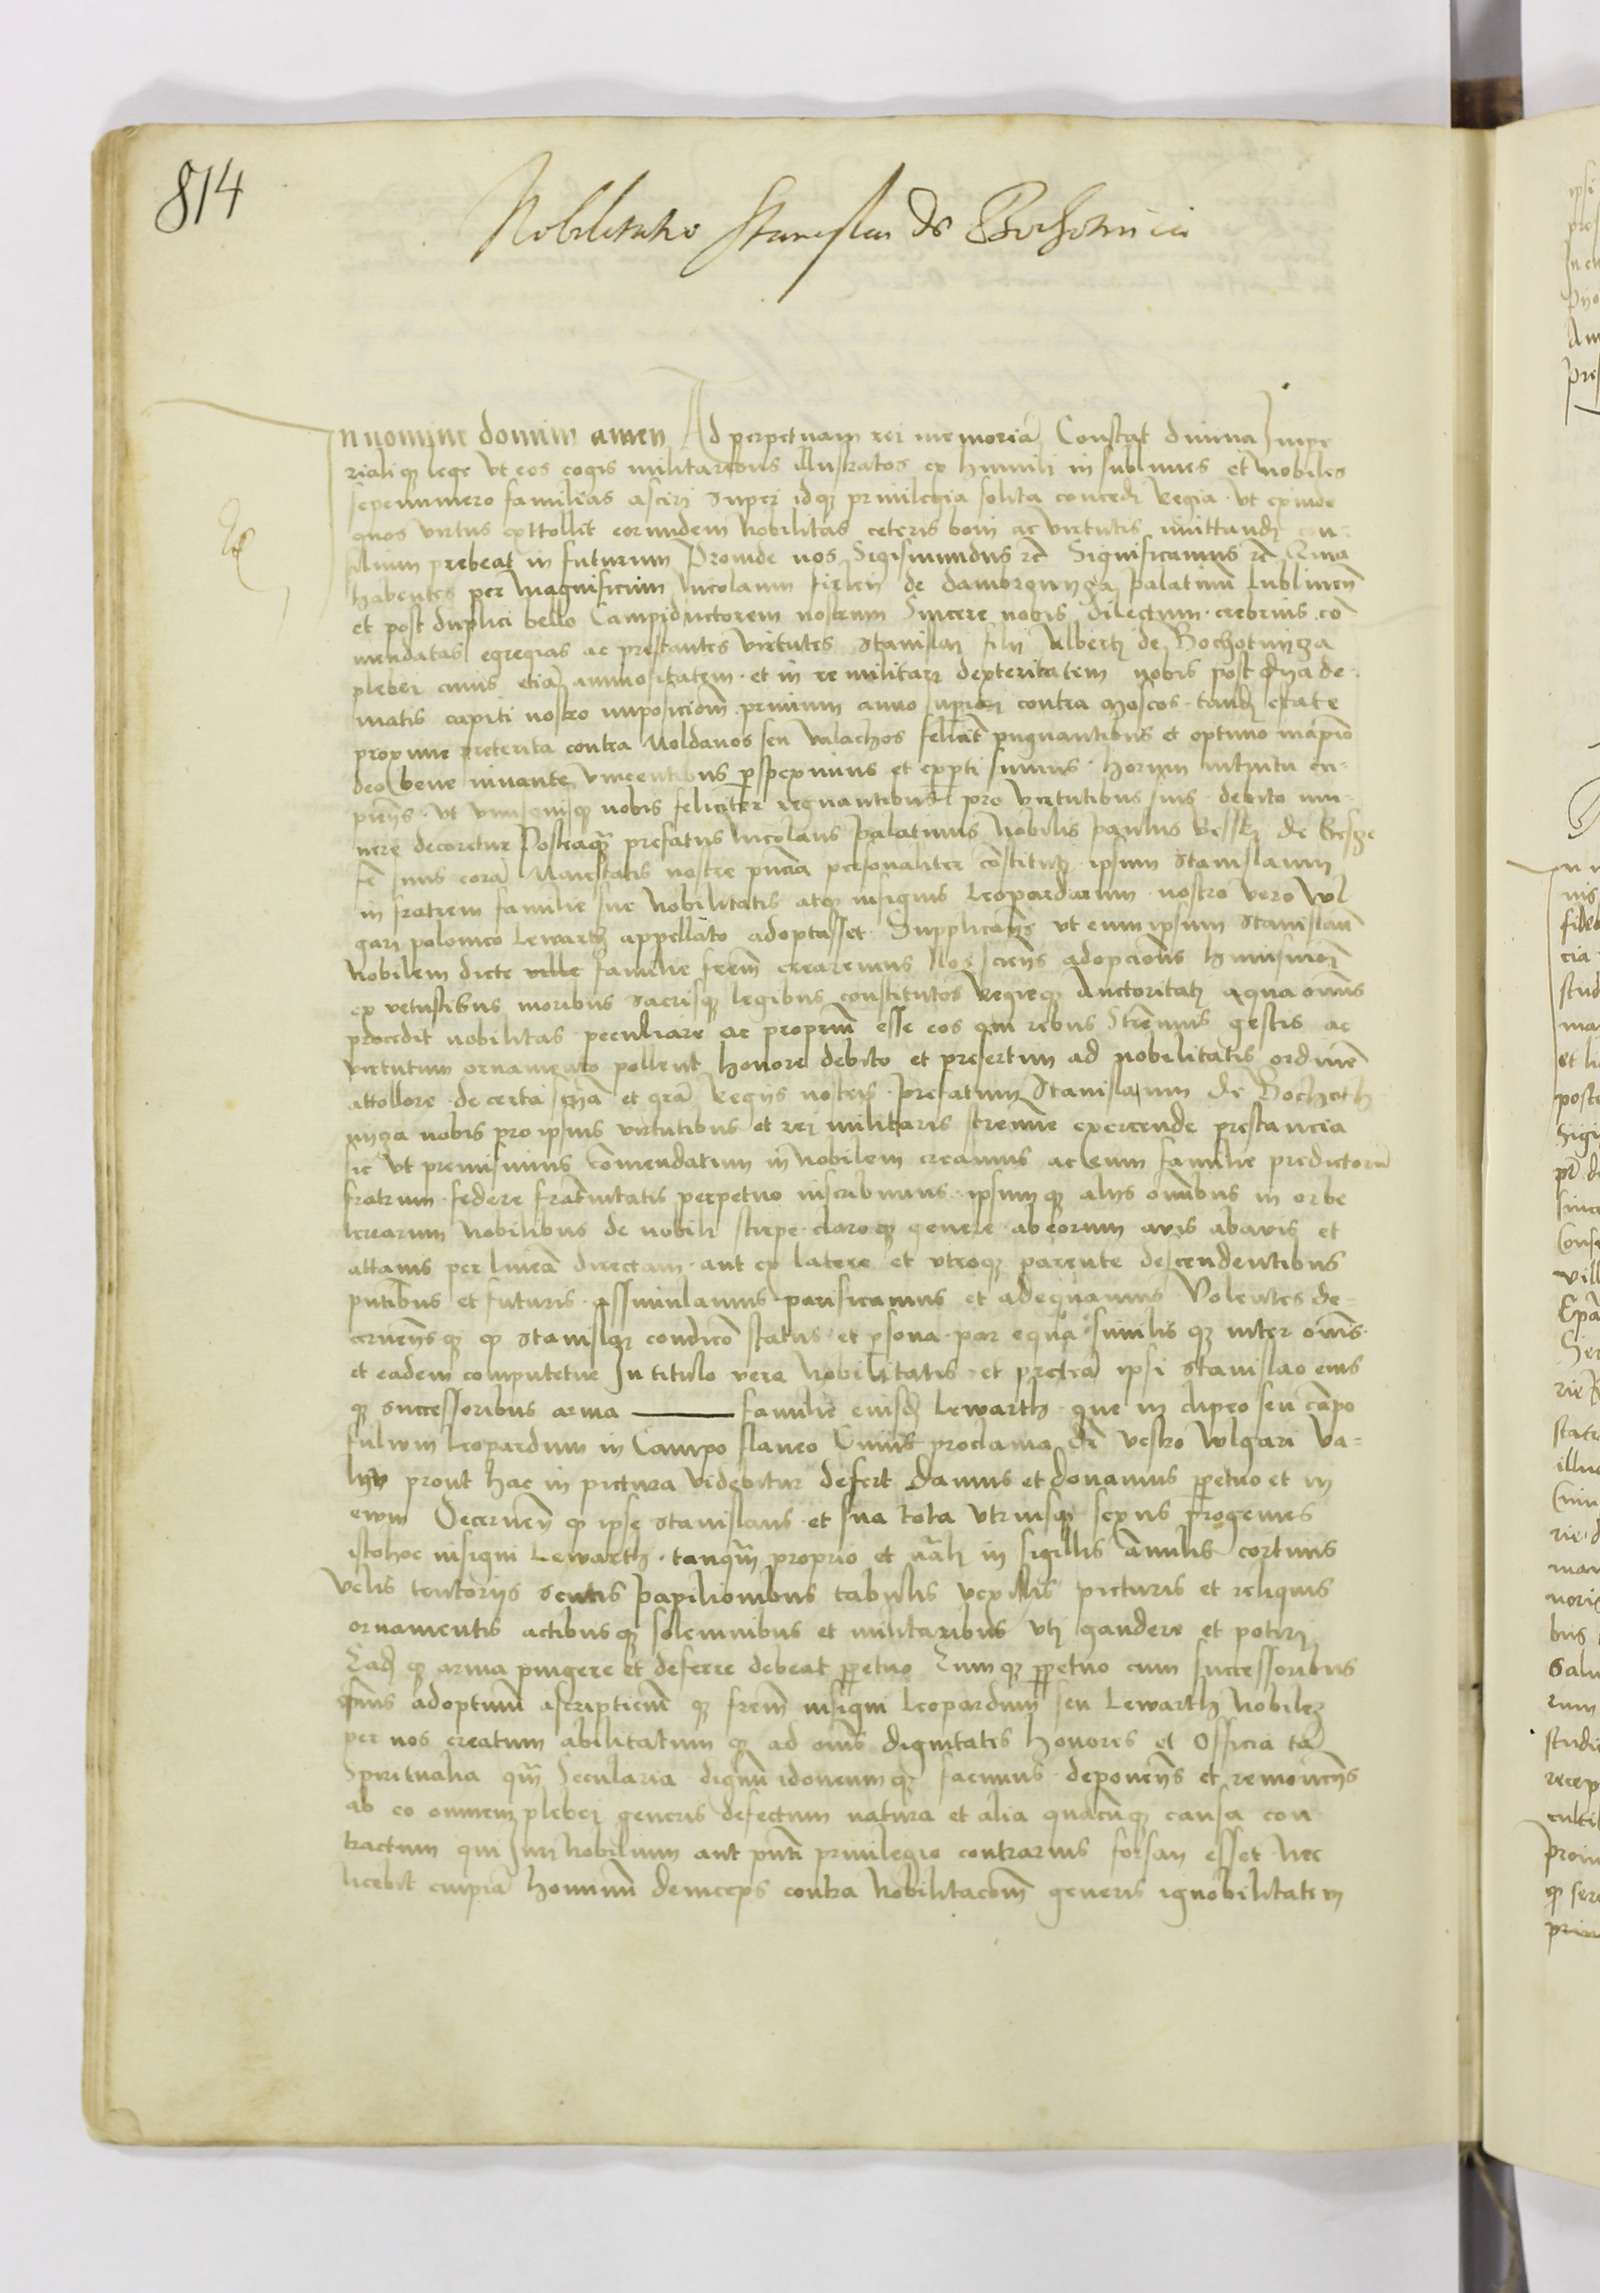 814
Nobilitatio Stanislai de Bochotnicza
In nomine domini amen Ad perpetuam rei memoriā Constat divina Impe
riali qz lege vt eos togis militaribus illustratos ex humili in sublimes et nobiles
sepenumero familias asciri super idqz privilegia solita concedi Regia vt exinde
quos virtus exttollit eorundem Nobilitas ceteris boni ac virtutis imittandi con-
silium prebeat in futurum Proinde nos Sigismundus rc Significamus rc Quia
habentes per Magnificum Nicolaum firlei de damбrowycza palatinū Lublineñ
et post duplici bello Campiductorem nostrum Sincere nobis dilectum crebrius cō
mendatas egregias ac prestantes virtutes Stanislai filii Alberti de Bochotnicza
plebei cuius etiā animositatem et in re militari dexteritatem nobis post dyade-
matis capiti nostro imposicionē primum anno superiori contra Moscos tandē estate
proxime preterita contra Moldavos seu valachos feliciter pugnantibus et optimo maximo
deo bene iuvante vincentibus perspeximus et experti sumus horum intuitu cu-
pientes vt vnusquisqz nobis feliciter regnantibus pro virtutibus suis debito mu-
nere decoretur Posteaqz prefatus Nicolaus palatinus Nobilis paulus
suus corā Maiestatis nostre pncia personaliter constituti ipsum Stanislaum
in fratrem familie sue Nobilitatis atqz insignis Leopardorum nostro vero vul
gari polonico Lewarth appellato adoptasset Supplicans vt eum ipsum Stanislaū
Nobilem dicte ville familie frēm crearemus Nos sciens adopcionis huiusmodi
ex vetustibus moribus sacrisqz legibus constitutos Regieqz Auctoritati a qua omnis
procedit nobilitas peculiare ac propriū esse eos qui rebus Strenuis gestis ac
virtutum ornamento pollent honore debito et presertim ad nobilitatis ordinē
attollere de certa sciā et grā Regiis nostris prefatum Stanislaum de Bochoth
nycza nobis pro ipsius virtutibus et rei militaris strenue exercende prestancia
sic vt premisimus comendatum in Nobilem creamus ac eum familie predictorū
fratrum federe fraternitatis perpetuo inscribimus ipsumqz aliis omnibus in orbe
terrarum Nobilibus de nobili stirpe claroqz genere ab eorum avis abavis et
attavis per lineā directam aut ex latere et vtroqz parente descendentibus
pntibus et futuris assimilamus parificamus et adequamus Volentes de-
cernensqz qz Stanislai condicio status et psona par equa similis qz inter omnes
et eadem computetur In titulo vere Nobilitatis et preterea ipsi Stanislao eius
qz successoribus arma ——— familie eiusdē Lewarth que in clipeo seu cāpo
fulvum Leopardum in Campo flaveo Cuius proclama de vestro vulgari Va-
lny prout hac in pictura videbitur defert damus et donamus ppetuo et in
evum Decernēn qz ipse Stanislaus et sua tota vtriusqz sexus progenies
istohoc insigni Lewarth tanquā proprio et nāli in sigillis anulis cortinis
velis tentoriis scutis papilionibus tabulis vexillis picturis et reliquis
ornamentis actibusqz solemnibus et militaribus vti gaudere et potiri
Eadē qz arma pingere et deferre debeat ppetuo Eumqz ppetuo cum successoribus
suis adoptivū ascripticiū qz frēm insigni Leopardum seu Lewarth Nobilē
per nos creatum abilitatum qz ad omnis dignitatis Honores et Officia tā
Spiritualia quā Secularia dignū idoneumqz facimus deponens et removens
ab eo omnem plebei generis defectum natura et alia quacūqz causa con
tractum qui Iuri Nobilium aut pnti privilegio contrarius forsan esset nec
licebit cuipiā hominū deinceps contra Nobilitacionē generis ignobilitatem